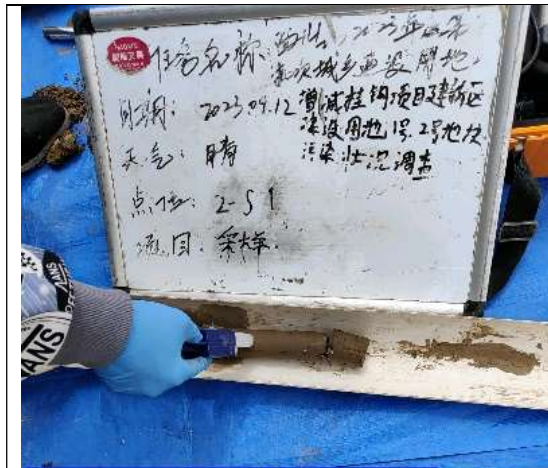 任务名称: 2023年
城乡建设用地
日期: 2023.09.12 增减挂钩项目建新区
建设用地1号、2号地块
天气: 晴
污染状况调查
点位: 2-S1
项目: 采样
VANS